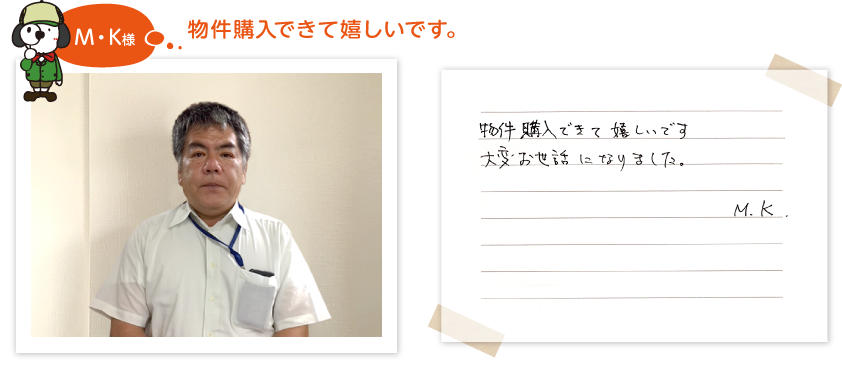 M・K様
物件購入できて嬉しいです。
物件購入できて嬉しいです
大変お世話になりました。
M.K.